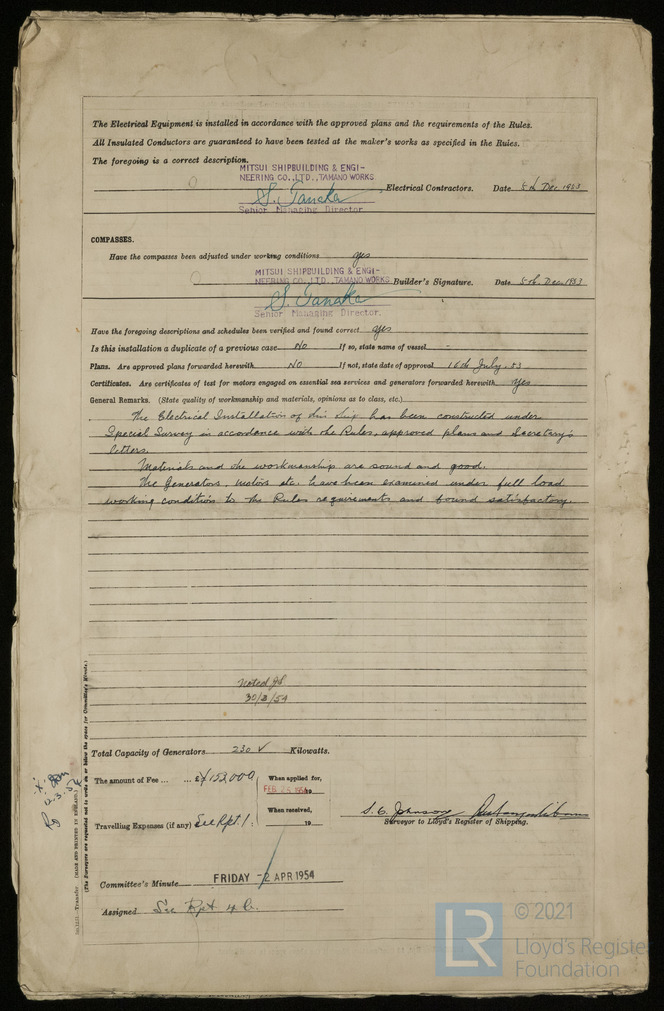 The Electrical Equipment is installed in accordance with the approved plans and the requirements of the Rules.
All Insulated Conductors are guaranteed to have been tested at the maker's works as specified in the Rules.
The foregoing is a correct description.
MITSUI SHIPBUILDING & ENGI-
NEERING CO., LTD., TAMANO WORKS
S. Tanaka Electrical Contractors. Date 5th Dec 1953
Senior Managing Director
COMPASSES.
Have the compasses been adjusted under working conditions yes
MITSUI SHIPBUILDING & ENGI-
NEERING CO., LTD., TAMANO WORKS Builder's Signature. Date 5th. Dec. 1953
S. Tanaka
Senior Managing Director.
Have the foregoing descriptions and schedules been verified and found correct yes
Is this installation a duplicate of a previous case No If so, state name of vessel -
Plans. Are approved plans forwarded herewith No If not, state date of approval 16th July. 53
Certificates. Are certificates of test for motors engaged on essential sea services and generators forwarded herewith Yes
General Remarks. (State quality of workmanship and materials, opinions as to class, etc.)
The Electrical Installation of this ship has been constructed under
Special Survey in accordance with the Rules, approved plans and Secretary's
letters.
Materials and the workmanship are sound and good.
The Generators, motors etc. have been examined under full load
working condition to the Rules requirements and found satisfactory.
Noted
30/3/54
Total Capacity of Generators 230 ✓ Kilowatts.
The amount of Fee ... ... £ ¥152,000 When applied for,
FEB 25 1954 19
When received,
Travelling Expenses (if any) £ See Rpt 1. 19
S. G. Johnson
Surveyor to Lloyd's Register of Shipping.
Committee's Minute FRIDAY -2 APR 1954
Assigned See Rpt 4 b.
(MADE AND PRINTED IN ENGLAND.)
(The Surveyors are requested not to write on or below the space for Committee's Minute.)
LR © 2021
Lloyd's Register
Foundation